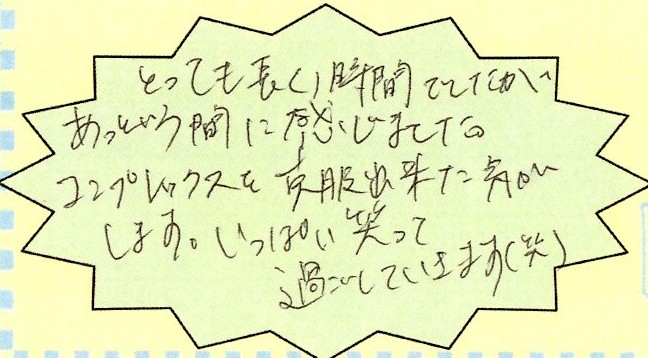 とっても長い時間でしたが
あっという間に感じました。
コンプレックスを克服出来た気が
します。いっぱい笑って
過ごしていきます(笑)